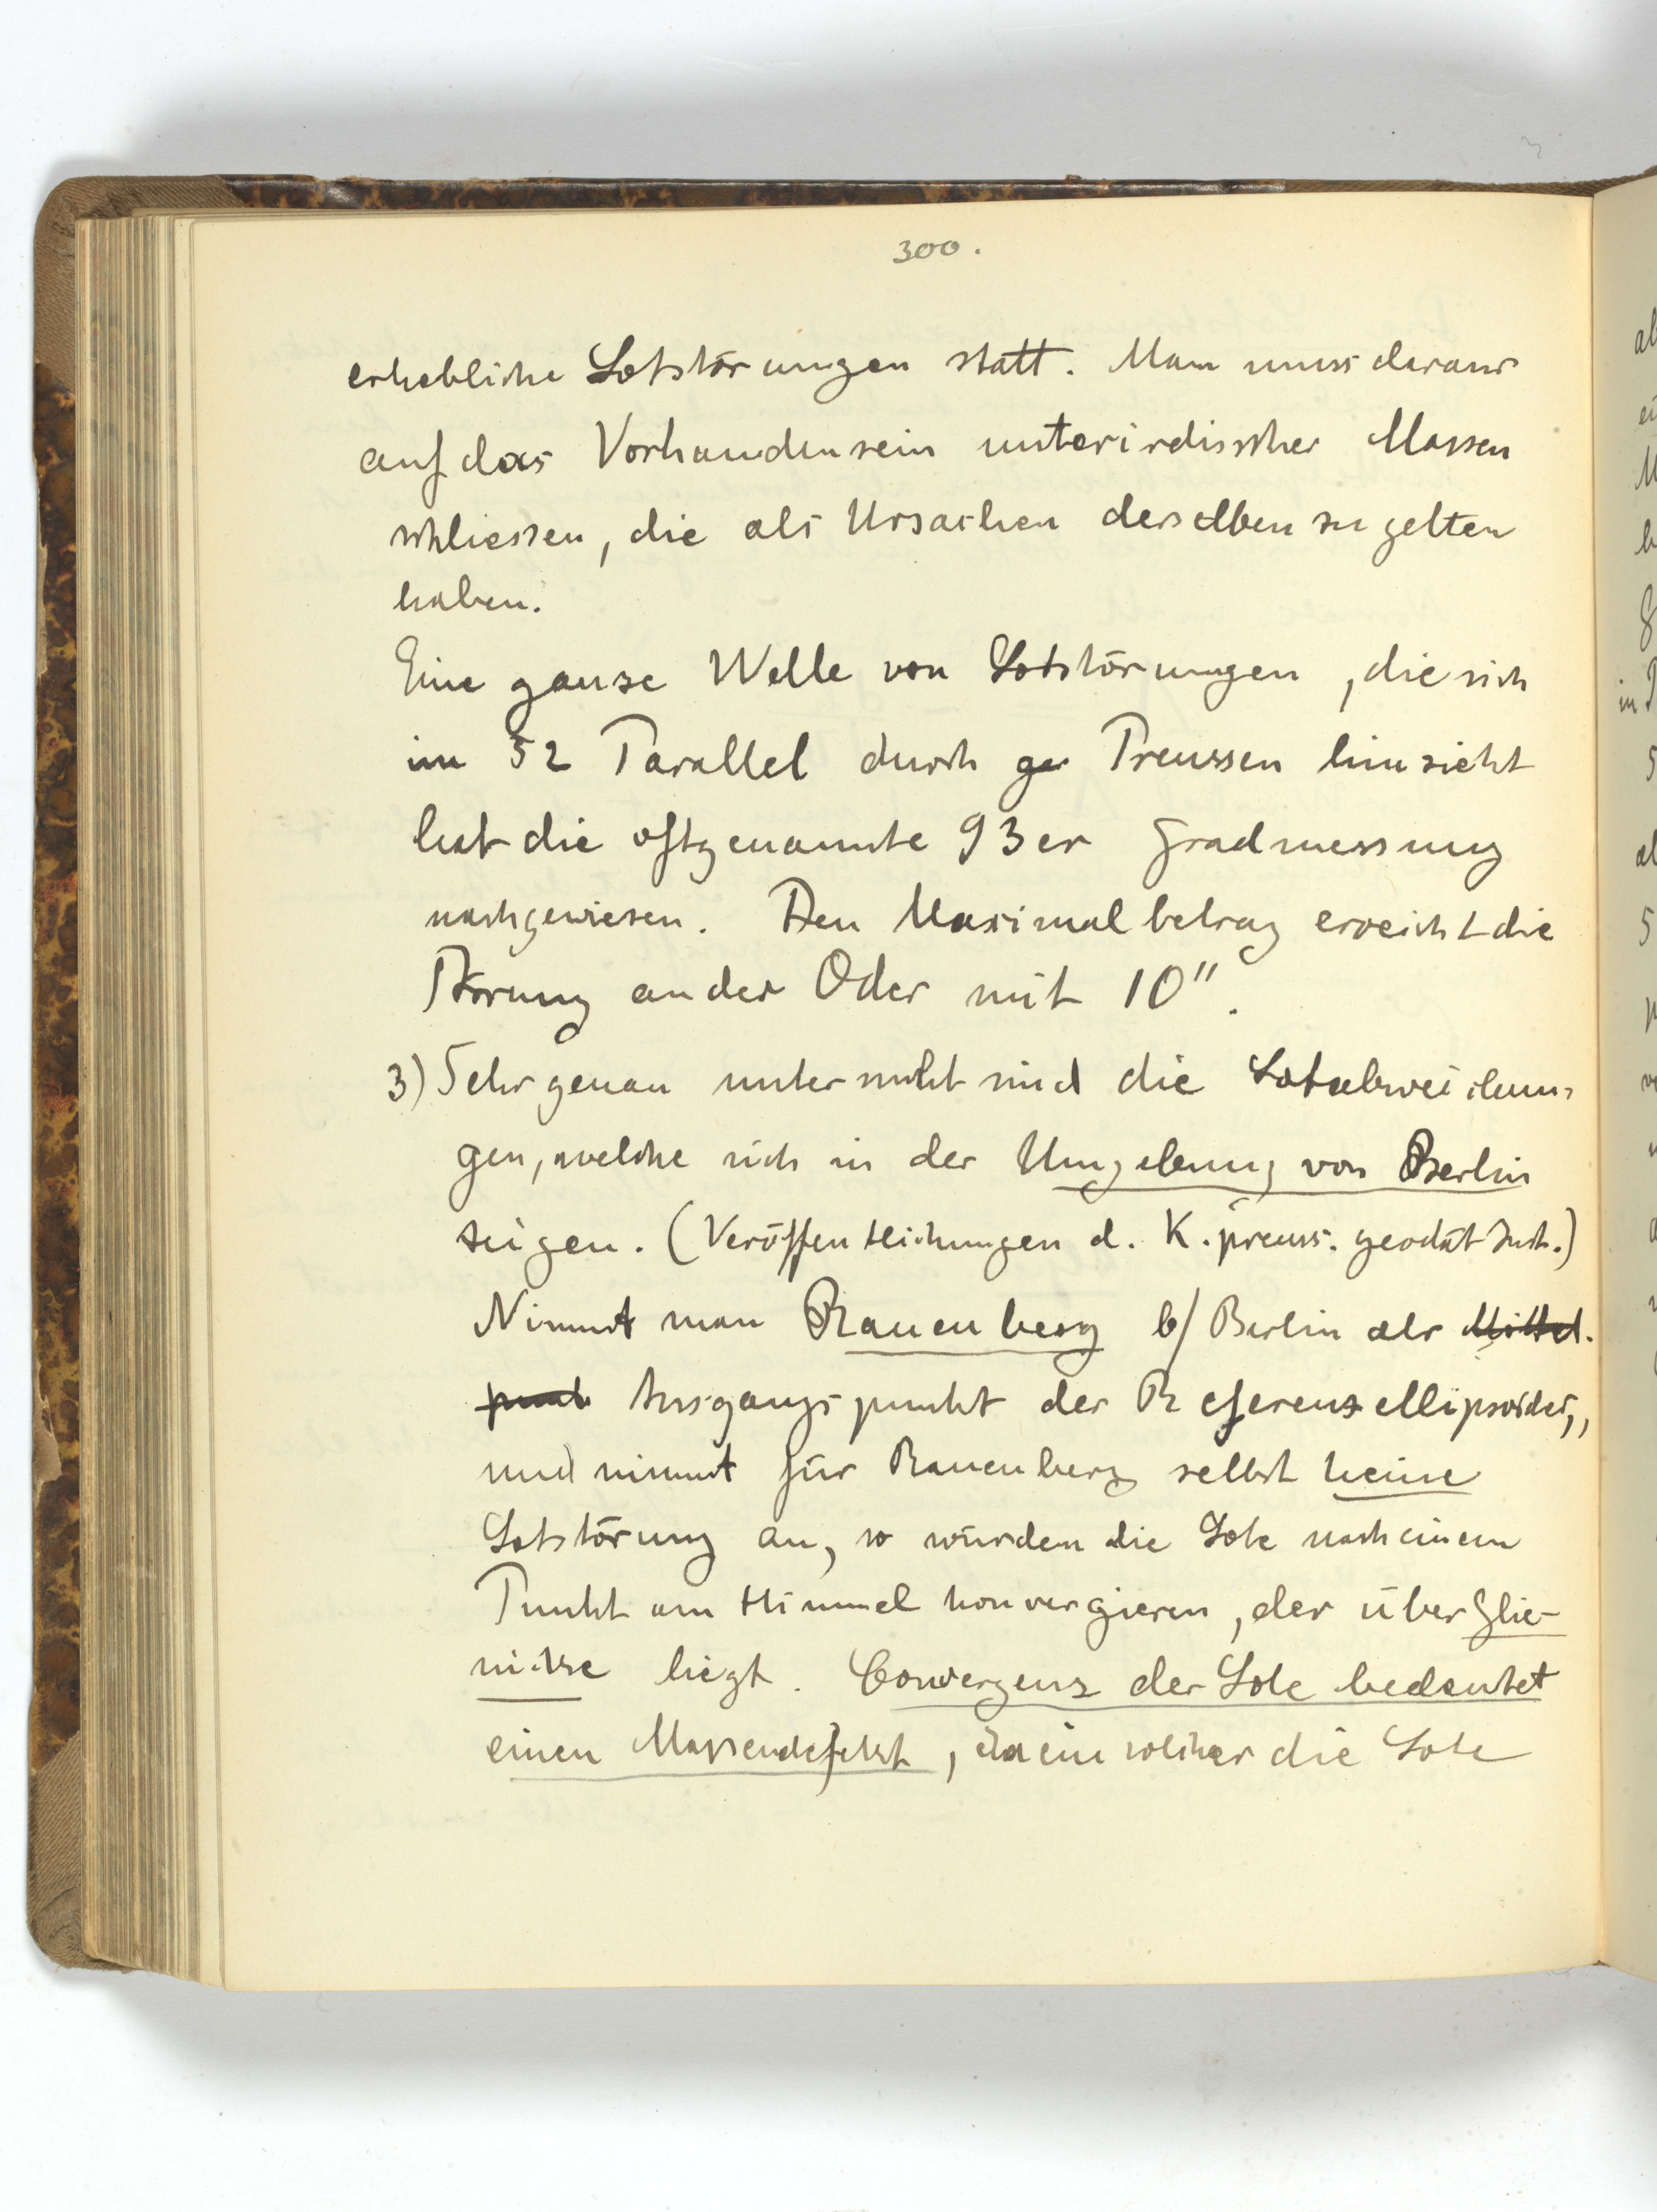 300.
erhebliche Lotstörungen statt. Man muss daraus
auf das Vorhandensein unterirdischer Massen
schliessen, die als Ursachen derselben zu gelten
haben.
Eine ganze Welle von Lotstörungen, die sich
im 52 Parallel durch ge Preussen hinzieht
hat die oftgenannte 93er Gradmessung
nachgewiesen. Den Maximalbetrag erreicht die
Störung an der Oder mit 10".
3) Sehr genau untersucht sind die Lotabweichun-
gen, welche sich in der Umgebung von Berlin
zeigen. (Veröffentlichungen d. K. preuss. geodät Inst.)
Nimmt man Rauenberg b/ Berlin als Mittel-
punkt Ausgangspunkt des Referenzellipsoides,
und nimmt für Rauenberg selbst keine
Lotstörung an, so würden die Lote nach einem
Punkt am Himmel konvergieren, der über Glie-
nicke liegt. Convergenz der Lote bedeutet
einen Massendefekt, da ein solcher die Lote